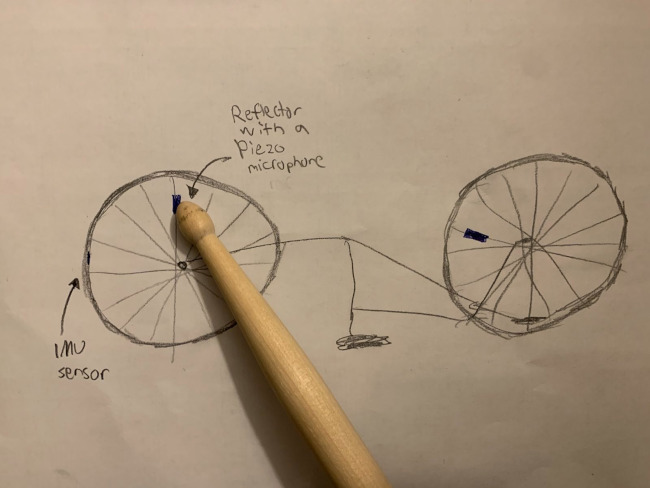 Reflector
with a
Piezo
microphone
IMU
sensor